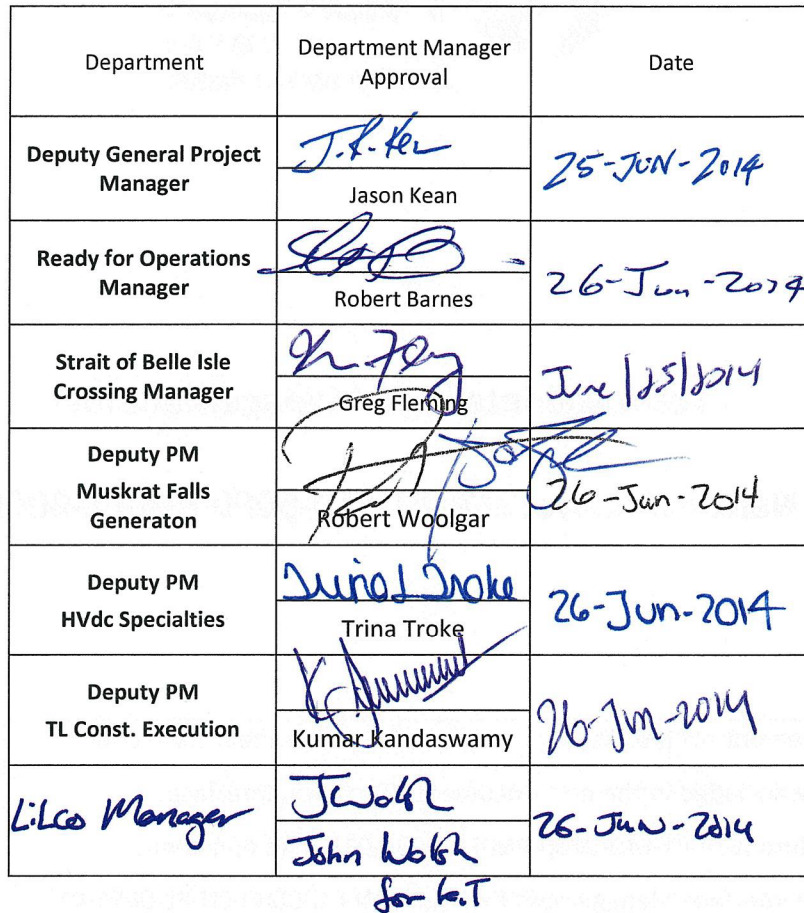 Department
Department Manager
Approval
Date
Deputy General Project
Manager
J.K. Ke
Jason Kean
25-JUN-2014
Ready for Operations
Manager
Robert Barnes
26-Jun-2014
Strait of Belle Isle
Crossing Manager
Greg Fleming
June/25/2014
Deputy PM
Muskrat Falls
Generaton
Robert Woolgar
26-Jun-2014
Deputy PM
HVdc Specialties
Trina L Troke
Trina Troke
26-Jun-2014
Deputy PM
TL Const. Execution
Kumar Kandaswamy
26-Jun-2014
LiLco Manager
J Walsh
John Walsh
for K.T
26-Jun-2014